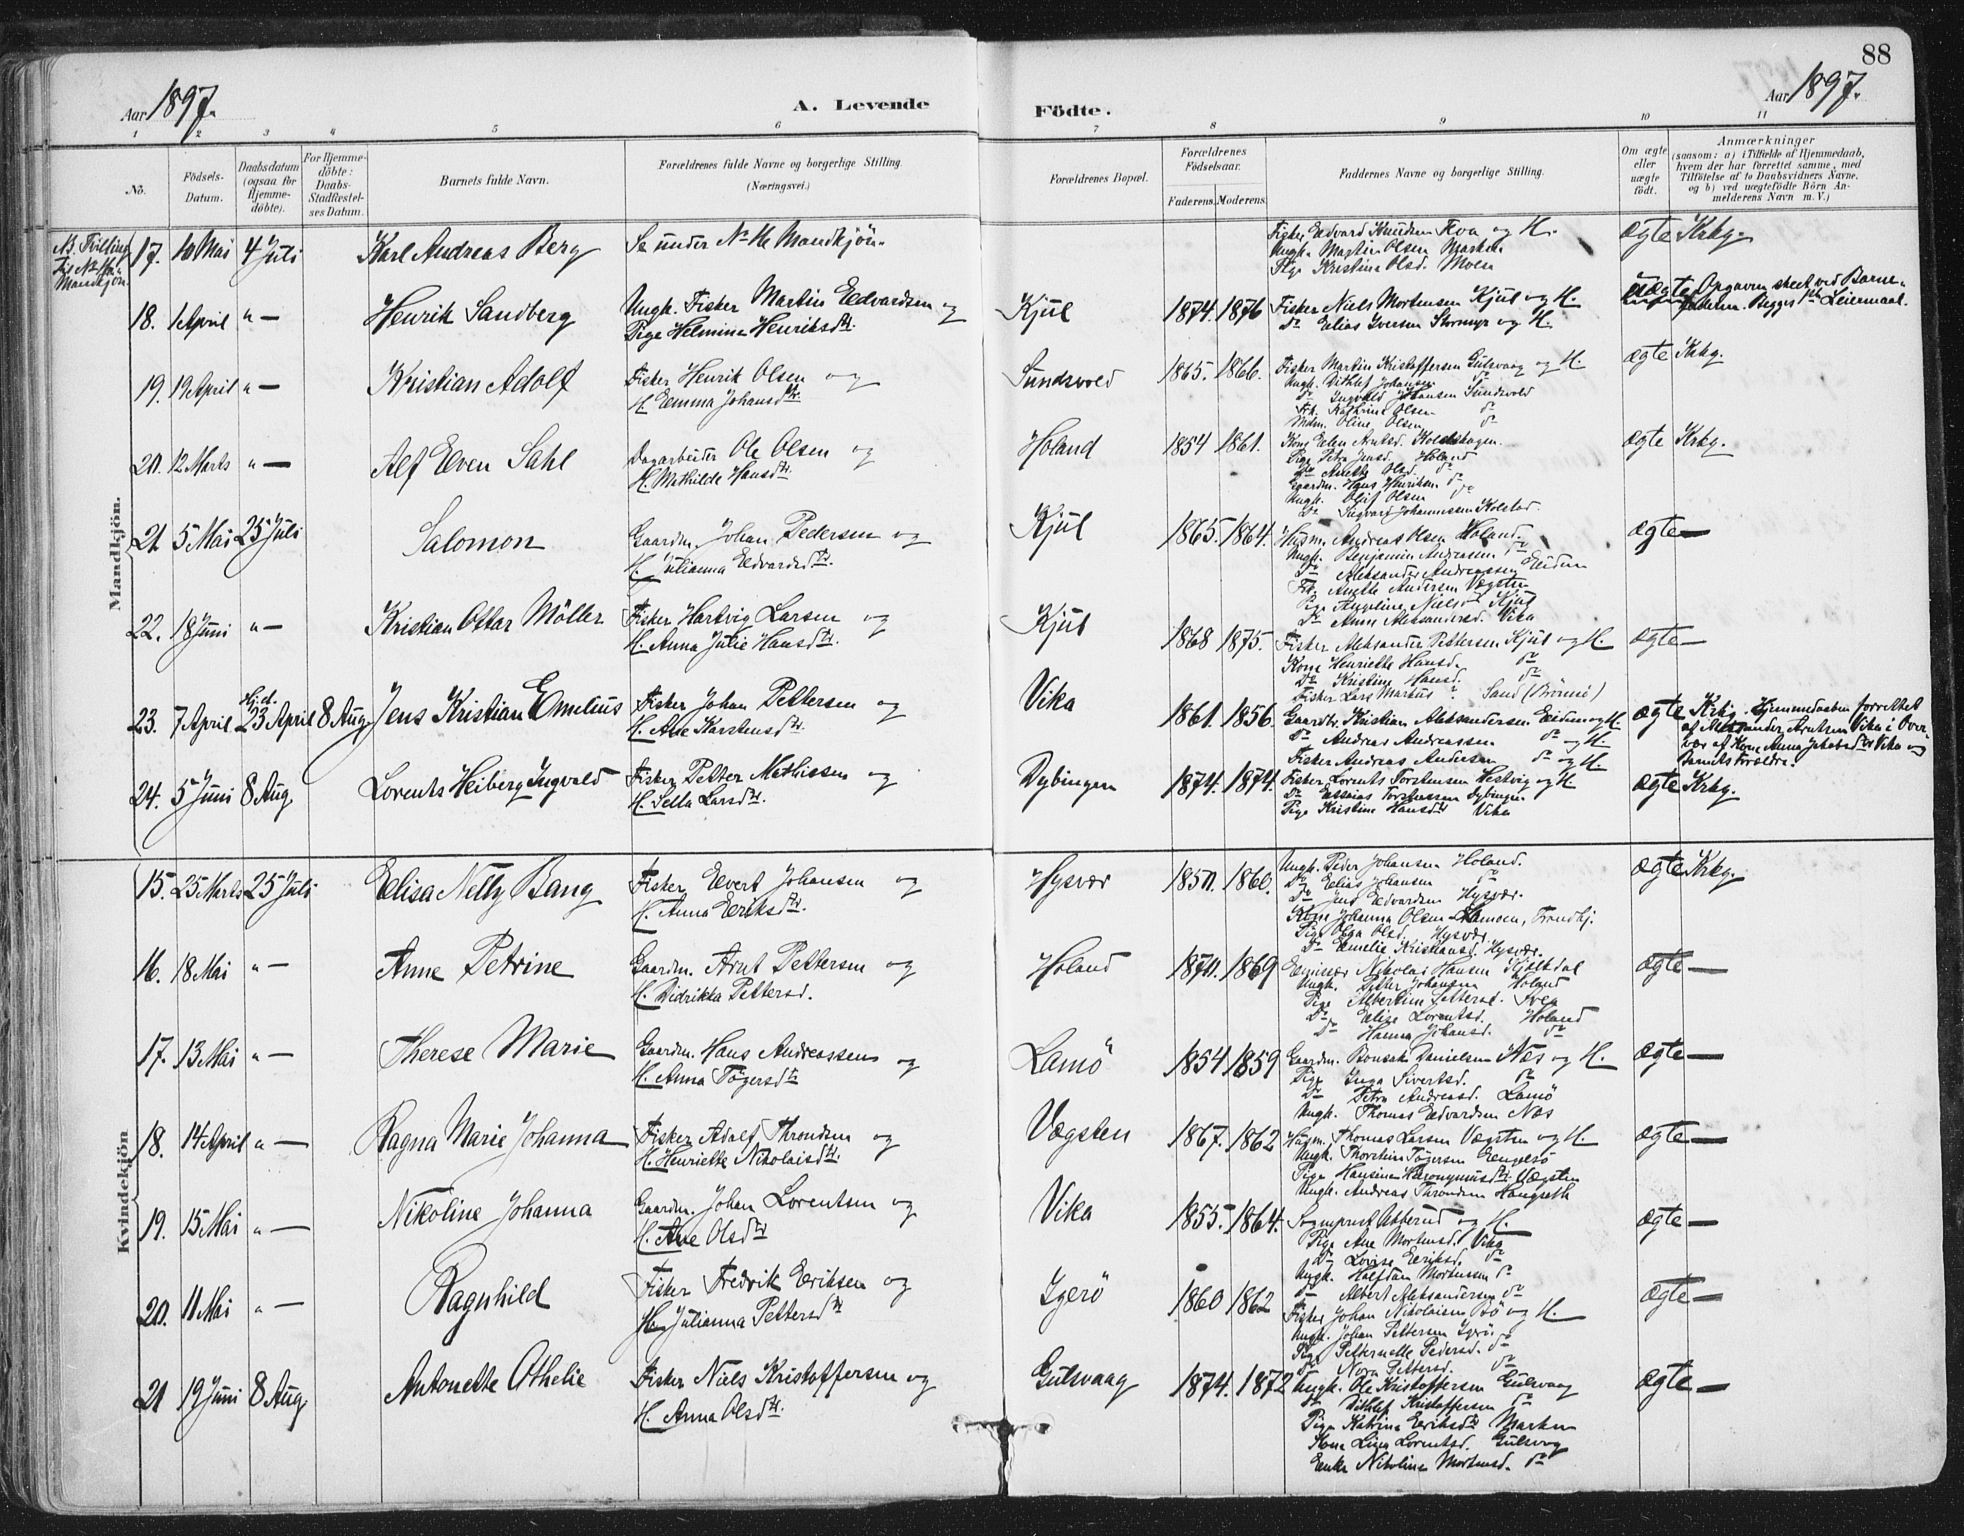 88
Aar 1897.
A. Levende Födte.
Aar 1897.
1 2 3 4 5 6 7 8 9 10 11
No.
Födsels-Datum.
Daabsdatum (ogsaa for Hjemme-döbte).
For Hjemme-döbte: Daabs-Stadfæstel-ses Datum.
Barnets fulde Navn.
Forældrenes fulde Navne og borgerlige Stilling. (Næringsvei.)
Forældrenes Bopæl.
Forældrenes Födselsaar.
Faderens. Moderens.
Faddernes Navne og borgerlige Stilling.
Om ægte eller uægte födt.
Anmærkninger
(saasom: a) i Tilfælde af Hjemmedaab,
hvem der har forrettet samme, med
Tilföielse af to Daabsvidners Navne.
og b) ved uægtefödte Börn An-
melderens Navn m. V.)
Mandkjön.
17. 10 Mai 4 Juli Karl Andreas Berg Se under No 16 Mandkjön. ægte Krkg.
Fisker Edvard Knudsen Kva og H.
Ungk. Martin Olsen Marken
Pige Kristina Olsd. Moen
18. 1 April " — Henrik Sandberg Ungk. Fisker Martin Edvardsen og Kjul 1874. 1876 Fisker Niels Mortensen Kjul og H. uægte Opgaven skeet ved Barne-
Pige Helmina Henriksdtr. Do Elias Iversen Stormyr og H. faderen. Begges 1ste Leiermaal.
19. 19 April " — Kristian Adolf Fisker Henrik Olsen og Sundsvold 1865. 1866. Fisker Martin Kristoffersen Gulsvaag og H. ægte Krkg.
H. Emma Johansdtr. Ungk. Ditlef Johansen do
Do Ingvald Johansen Sundsvold
Frk. Kathrine Olsen do
Mdm. Oline Olsen do
20. 12 Marts " — Alf Even Sahl Dagarbeider Ole Olsen og Holand 1854 1861. ægte Krkg.
H. Mathilde Hansdtr. Pige Petra Jensd. Holand
Do Anette Olsd. do
Gaardm. Hans Henriksen do
Ungk. Oluf Olsen do
Do Sigvard Johannessen Kolstad
21. 5 Mai 25 Juli Salomon Gaardm. Johan Pedersen og Kjul 1865. 1864. Husm. Andreas Olsen Holand. ægte —
H. Julianna Edvardsdtr. Ungk. Benjamin Andreasen do
Do Aleksander Andreassen Eidem
Frk. Anette Andersen Vægsten
Pige Angeline Nielsd. Kjul
Do Anne Aleksandersd. Vika
22. 18 Juni " — Kristian Ottar Möller Fisker Hartvig Larsen og Kjul 1868 1875. Fisker Aleksander Pettersen Kjul og H. ægte —
H. Anna Julie Hansdtr. Kone Henriette Hansd. do
Do Kristine Hansd. do
Fisker Lars Markus ? Sand (Brönnö)
23. 7 April Hjd. 23 April 8 Aug Jens Kristian Emelius Fisker Johan Pettersen og Vika 1861. 1856. Gaardbr. Kristian Aleksandersen Eidem og H. ægte Krkg. Hjemmedaaben forrettet
H. Ane Karstensdtr. Do Andreas Andreassen do og H. af Aleksander Arntsen Vika i Over-
Fisker Andreas Andersen do og H. vær af Kone Anna Jakobsdtr Vika og
Barnets Forældre.
24. 5 Juni 8 Aug. Lorents Heiberg Ingvald Fisker Petter Mathissen og Dybingen 1874. 1874. Fisker Lorents Torstensen Hestvig og H. ægte Krkg.
H. Sella Larsdtr. Do Essaias Torstensen Dybingen
Pige Kristine Hansdtr Vika
Kvindekjön
15. 25 Marts 25 Juli Elisa Netty Bang Fisker Evert Johansen og Hysvær 1850. 1860. Ungk. Peder Johansen Holand. ægte Krkg.
H. Anna Eriksdtr. Do Elias Johansen do
Do Jens Edvardsen Hysvær.
Kone Johanna Olsen Lamoen, Trondhj.
Pige Olga Olsd. Hysvær
Do Emelie Kristiansd. Hysvær.
16. 18 Mai " — Anne Petrine Gaardm. Arnt Pettersen og Holand 1870. 1869 Emissær Nikolai Hansen ægte —
H. Didrikka Pettersd. Ungk. Petter Johansen Holand
Pige Albertine Pettersd.
Do Elise Lorentsd. Holand
Do Hanna Johansd. do
17. 13 Mai " — Therese Marie Gaardm. Hans Andreassen og Lamö 1854 1859 Gaardm. Bonsak Danielsen Næs og H. ægte —
H. Anna Tögersdtr Pige Inga Sivertsd. do
Do Petra Andreasd. Lamö
Ungk. Thomas Edvardsen Næs
18. 14 April " — Ragna Marie Johanna Fisker Adolf Throndsen og Vægsten 1867. 1862 Husm. Thomas Larsen Vægsten og H. ægte —
H. Henriette Nikolaisdtr. Ungk. Thorstein Tögersen Rengelsö
Pige Hansine Hieronymusdtr Vægsten
Ungk. Andreas Throndsen Haugseth
19. 15 Mai " — Nikoline Johanna Gaardm. Johan Lorentsen og Vika 1855. 1864. Sogneprest Atterud og H. ægte —
H. Ane Olsdtr Pige Ane Mortensd. Vika
Do Lovise Eriksd. do
Ungk. Halfdan Mortensen do
Do Albert Aleksandersen do
20. 11 Mai " — Ragnhild Fisker Fredrik Eriksen og Igerö 1860 1862 Fisker Johan Nikolaisen Bö og H. ægte —
H. Julianna Pettersdtr Ungk. Johan Pettersen Igerö
Pige Petternelle Pedersd. do
Do Nora Pettersd. do
21 19 Juni 8 Aug. Antonette Othelie Fisker Niels Kristoffersen og Gulsvaag 1874. 1872 Ungk. Ole Kristoffersen Gulsvaag ægte —
H. Anna Olsdtr. Do Ditlef Kristoffersen do
Pige Katrine Eriksdtr Marken
Kone Lina Lorentsd. Gulsvog
Enke Nikoline Mortensd. do